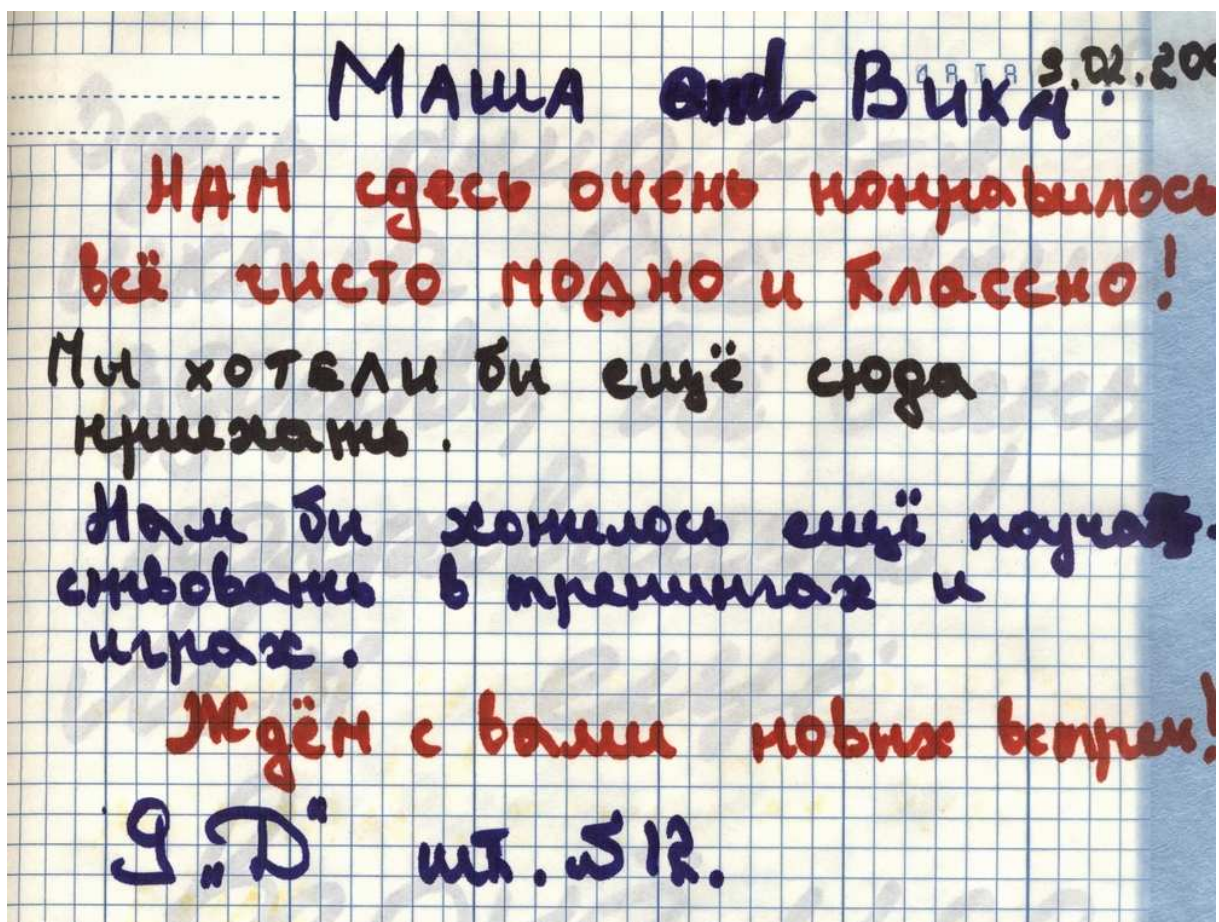 Маша and Вика. 9.02.200
ДАТА
НАМ сдесь очень понравилось
всё чисто модно и классно!
Мы хотели бы ещё сюда
приехать.
Нам бы хотилось ещё поучаст-
ствовать в тренингах и
играх.
Ждём с вами новых встреч!
9 „Д“ шк. №512.